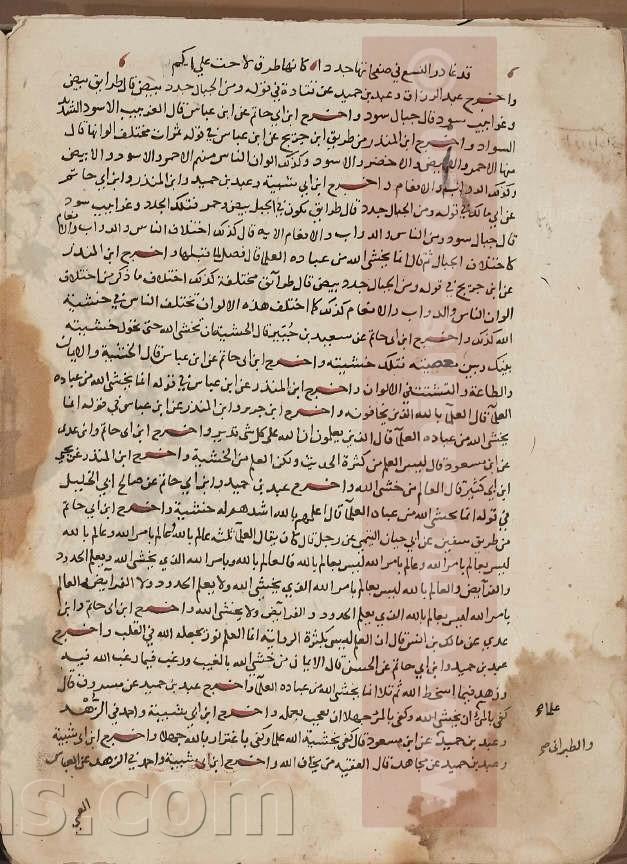 قد غادر النسع في صفحاتها جددا كانها طرق لاحت على اكم
واخرج عبد الرزاق وعبد بن حميد عن قتادة في قوله ومن الجبال جدد بيض قال طرايق بيض
وغرابيب سود قال جبال سود واخرج ابن ابي حاتم عن ابن عباس قال الغربيب الاسود الشديد
السواد واخرج ابن المنذر من طريق ابن جريج عن ابن عباس في قوله ثمرات مختلف الوانها قال
منها الاحمر والابيض والاخضر والاسود وكذلك الوان الناس منهم الاحمر والاسود والابيض
وكذلك الدواب والانعام واخرج ابن ابي شيبة وعبد بن حميد وابن المنذر وابن ابي حاتم
عن ابي مالك في قوله ومن الجبال جدد قال طرايق تكون في الجبل بيض وحمر فتلك الجدد وغرابيب سود
قال جبال سود ومن الناس والدواب والانعام الاية قال كذلك اختلاف الناس والدواب والانعام
كاختلاف الجبال ثم قال انما يخشى الله من عباده العلما قال فصل لما قبلها واخرج ابن المنذر
عن ابن جريج في قوله ومن الجبال جدد بيض قال طرائق مختلفة كذلك اختلاف ما ذكر من اختلاف
الوان الناس والدواب والانعام كذلك كما اختلف هذه الالوان تختلف الناس في خشية
الله كذلك واخرج ابن ابي حاتم عن سعيد بن جبير قال الخشية ان تخشى الله حتى تحول خشيته
بينك وبين معصيته فتلك خشيته واخرج ابن ابي حاتم عن ابن عباس قال الخشية والايمان
والطاعة والتشتت في الالوان واخرج ابن المنذر عن ابن عباس في قوله انما يخشى الله من عباده
العلما قال العلما بالله الذين يخافونه واخرج ابن جرير وابن المنذر عن ابن عباس في قوله انما
يخشى الله من عباده العلما قال الذين يعلمون ان الله على كل شي قدير واخرج ابن ابي حاتم وابن عدي
عن ابن مسعود قال ليس العلم من كثرة الحديث ولكن العلم من الخشية واخرج ابن المنذر عن يحيى
ابن ابي كثير قال العالم من خشى الله واخرج عبد بن حميد وابن ابي حاتم عن صالح ابي الخليل
في قوله انما يخشى الله من عباده العلما قال اعلمهم بالله اشدهم له خشية واخرج ابن ابي حاتم
من طريق سفين عن ابي حيان التيمي عن رجل قال كان يقال العلما ثلثة عالم بالله وعالم بامر الله وعالم بالله
ليس يعلم بامر الله وعالم بامر الله ليس يعلم بالله فالعالم بالله وبامر الله الذي يخشى الله ويعلم الحدود
والفرايض والعالم بالله ليس يعلم بامر الله الذي يخشى الله ولا يعلم الحدود ولا الفرايض والعالم
بامر الله ليس يعلم بالله الذي يعلم الحدود والفرائض ولا يخشى الله واخرج ابن ابي حاتم وابن
عدي عن مالك بن انس قال ان العلم ليس بكثرة الرواية انما العلم نور يجعله الله في القلب واخرج
عبد بن حميد وابن ابي حاتم عن الحسن قال الايمان من خشى الله بالغيب ورغب فيما رغب الله فيه
وزهد فيما اسخط الله ثم تلا انما يخشى الله من عباده العلما واخرج عبد بن حميد عن مسروق قال
كفى بالمرء ان يخشى الله وكفى بالمرء جهلا ان يعجب بعمله واخرج ابن ابي شيبة واحمد في الزهد
علماء
وعبد بن حميد عن ابن مسعود قال كفى بخشية الله علما وكفى باغترار بالله جهلا واخرج ابن ابي شيبة
والطبراني
وعبد بن حميد عن مجاهد قال الفقيه من يخاف الله واخرج ابن ابي شيبة واحمد في الزهد عن العباس
العمي